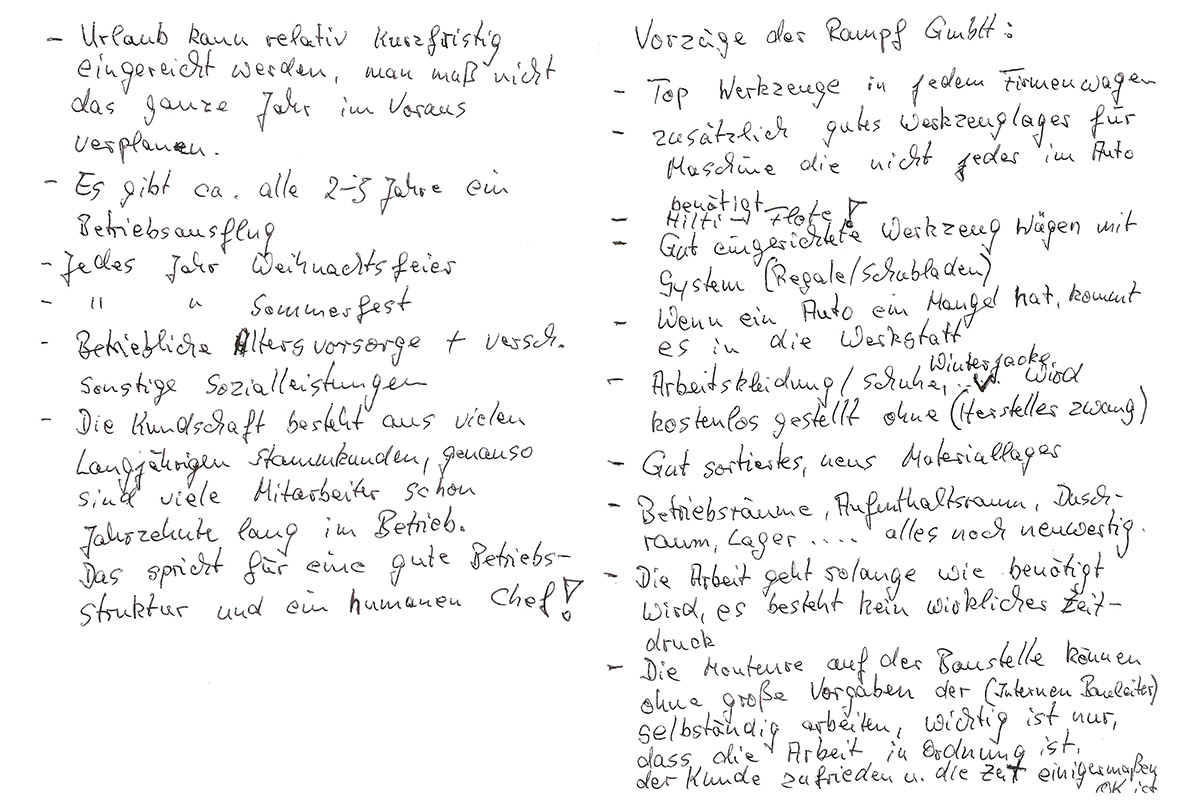 Vorzüge der Rampf GmbH:
- Top Werkzeuge in jedem Firmenwagen
- zusätzlich gutes Werkzeuglager für
Maschine die nicht jeder im Auto
benötigt
- Hilti → Flote!
- Gut eingerichtete Werkzeug Wägen mit
System (Regale/Schubladen)
- Wenn ein Auto ein Mangel hat, kommt
es in die Werkstatt
- Arbeitskleidung/Schuhe, Winterjacke ... wird
kostenlos gestellt ohne (Hersteller zwang)
- Gut sortiertes, neus Materiallager
- Betriebsräume, Aufenthaltsraum, Dusch-
raum, Lager .... alles noch neuwertig.
- Die Arbeit geht solange wie benötigt
wird, es besteht kein wirklicher Zeit-
druck
- Die Monteure auf der Baustelle können
ohne große Vorgaben der (Internen Bauleiter)
selbständig arbeiten, wichtig ist nur,
dass die Arbeit in Ordnung ist,
der Kunde zufrieden u. die Zeit einigermaßen
OK ist
- Urlaub kann relativ kurzfristig
eingereicht werden, man muß nicht
das ganze Jahr im Voraus
verplanen.
- Es gibt ca. alle 2-3 Jahre ein
Betriebsausflug
- Jedes Jahr Weihnachtsfeier
- " " Sommerfest
- Betriebliche Altersvorsorge + versch.
sonstige Sozialleistungen
- Die Kundschaft besteht aus vielen
Langjährigen Stammkunden, genauso
sind viele Mitarbeiter schon
Jahrzehnte lang im Betrieb.
Das spricht für eine gute Betriebs-
struktur und ein humanen Chef!